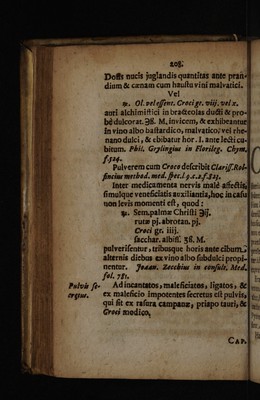 208.
Dosis nucis juglandis quantitas ante pran-
dium & cænam cum haustu vini malvatici.
Vel
℞. Ol. vel essent. Croci gr. viij. vel x.
auri alchimistici in bracteolas ducti & pro-
bè dulcorat. ʒß. M. invicem, & exhibeantur
in vino albo bastardico, malvatico, vel rhe-
nano dulci, & ebibatur hor. 1. ante lecti cu-
bitum. Phil. Grylingius in Florileg. Chym.
f.524.
Pulverem cum Croco describit Clariss. Rol-
fincius method. med. spec. l.9.c.2.f.523.
Inter medicamenta nervis malè affectis,
simulque veneficiatis auxiliantia, hoc in casu
non levis momenti est, quod :
℞. Sem. palmæ Christi ʒij.
rutæ pj. abrotan. pj.
Croci gr. iiij.
sacchar. albiss. ʒß. M.
pulverisentur, tribusque horis ante cibum,
alternis diebus ex vino albo subdulci propi-
nentur. Joann. Zecchius in consult. Med.
fol. 781.
Pulvis se-
cretus.
Ad incantatos, maleficiatos, ligatos, &
ex maleficio impotentes secretus est pulvis,
qui fit ex rasura campanæ, priapo tauri, &
Croci modico,
CAP.